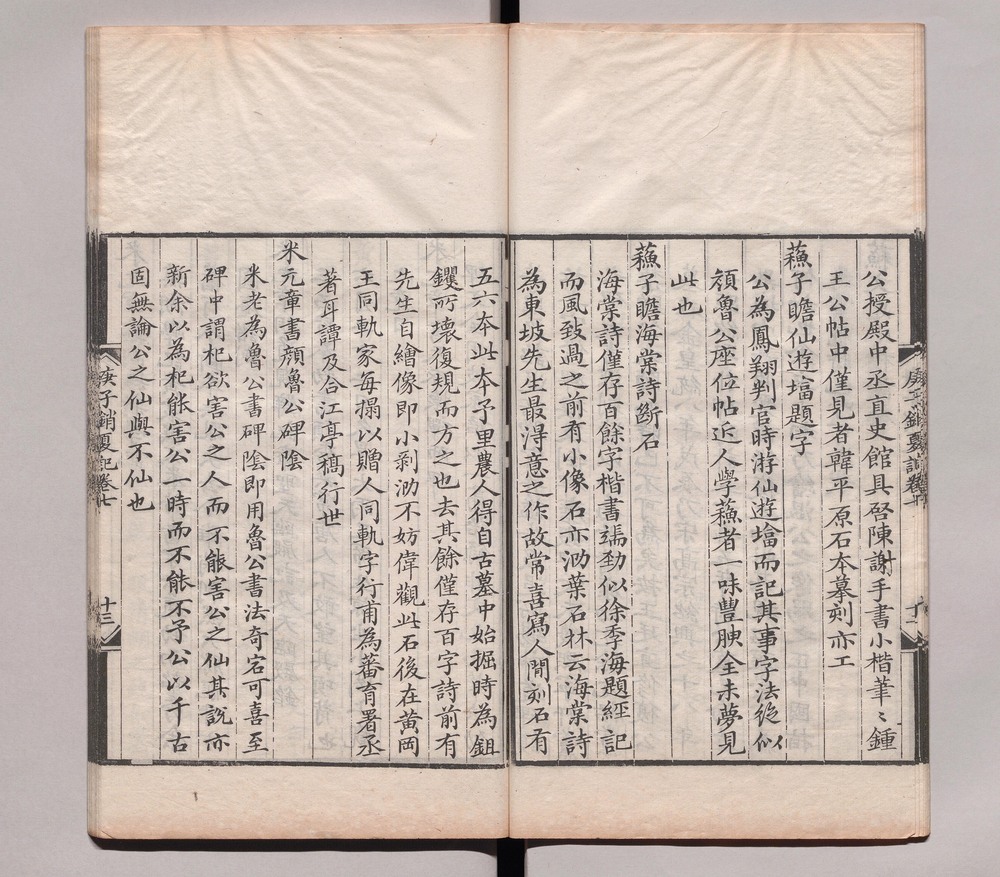 公授殿中丞直史館具啓陳謝手書小楷筆〻鍾
王公帖中僅見者韓平原石本摹刻亦工
蘓子瞻仙遊壇題字
公為鳳翔判官時游仙遊壇而記其事字法從似
顔魯公座位帖近人學蘓者一味豐腴全未夢見
此也
蘓子瞻海棠詩斷石
海棠詩僅存百餘字楷書端勁似徐季海題經記
而風致過之前有小像石亦泐葉石林云海棠詩
為東坡先生最淂意之作故常喜寫人間刻石有
五六本此本予里農人得自古墓中始掘時為鉏
钁所壊復規而方之也去其餘僅存百字詩前有
先生自繪像即小剥泐不妨偉觀此石後在黄岡
王同軌家每搨以贈人同軌字行甫為蕃育署丞
著耳譚及合江亭稿行世
米元章書顔魯公碑陰
米老為魯公書碑陰即用魯公書法奇宕可喜至
碑中謂杞欲害公之人而不能害公之仙其説亦
新余以為杞能害公一時而不能不予公以千古
固無論公之仙與不仙也
庚子銷夏記卷七
十三